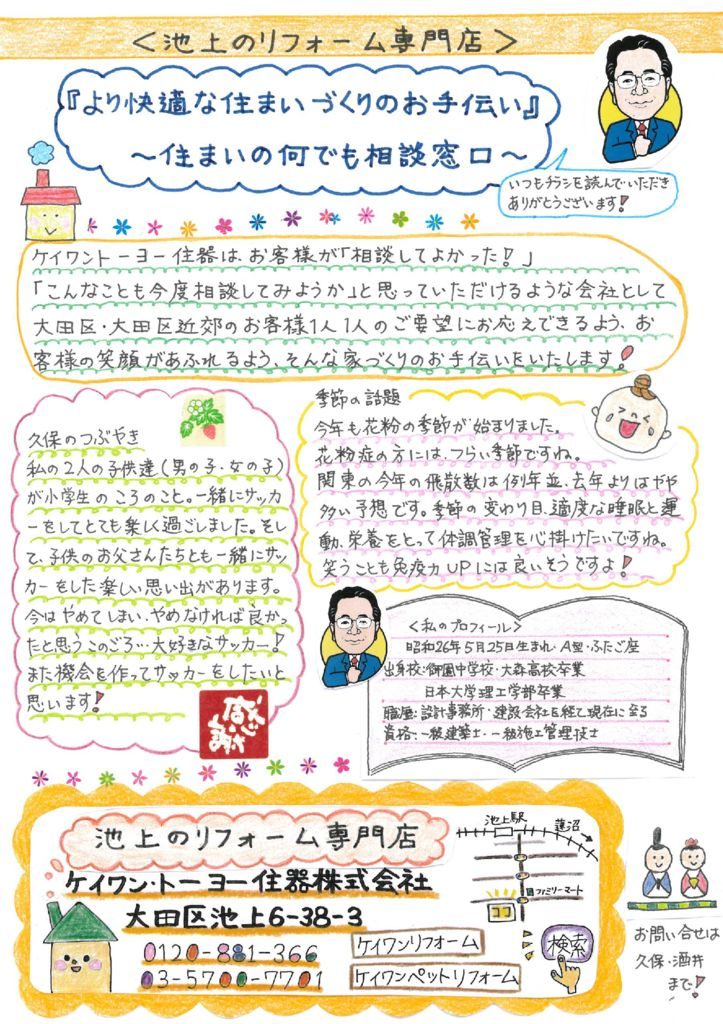 ＜池上のリフォーム専門店＞
『より快適な住まいづくりのお手伝い』
～住まいの何でも相談窓口～
いつもチラシを読んでいただき
ありがとうございます！
ケイワントーヨー住器は、お客様が「相談してよかった！」
「こんなことも今度相談してみようか」と思っていただけるような会社として
大田区・大田区近郊のお客様1人1人のご要望にお応えできるよう、お
客様の笑顔があふれるよう、そんな家づくりのお手伝いをいたします！
季節の話題
今年も花粉の季節が始まりました。
花粉症の方には、つらい季節ですね。
関東の今年の飛散数は例年並、去年よりはやや
多い予想です。季節の変わり目、適度な睡眠と運
動、栄養をとって体調管理を心掛けたいですね。
笑うことも免疫力UPには良いそうですよ！
久保のつぶやき
私の2人の子供達(男の子・女の子)
が小学生のころのこと。一緒にサッカ
ーをしてとても楽しく過ごしました。そし
て、子供のお父さんたちとも一緒にサッ
カーをした楽しい思い出があります。
今はやめてしまい、やめなければ良かっ
たと思うこのごろ…大好きなサッカー！
また機会を作ってサッカーをしたいと
思います！
感謝
＜私のプロフィール＞
昭和26年5月25日生まれ・A型・ふたご座
出身校:御園中学校・大森高校卒業
日本大学理工学部卒業
職歴:設計事務所・建設会社を経て現在に至る
資格:一級建築士・一級施工管理技士
池上のリフォーム専門店
ケイワン・トーヨー住器株式会社
大田区池上6-38-3
0120-881-366
03-5700-7701
ケイワンリフォーム
ケイワンペットリフォーム
検索
池上駅
蓮沼
ファミリーマート
ココ
お問い合せは
久保・酒井
まで！